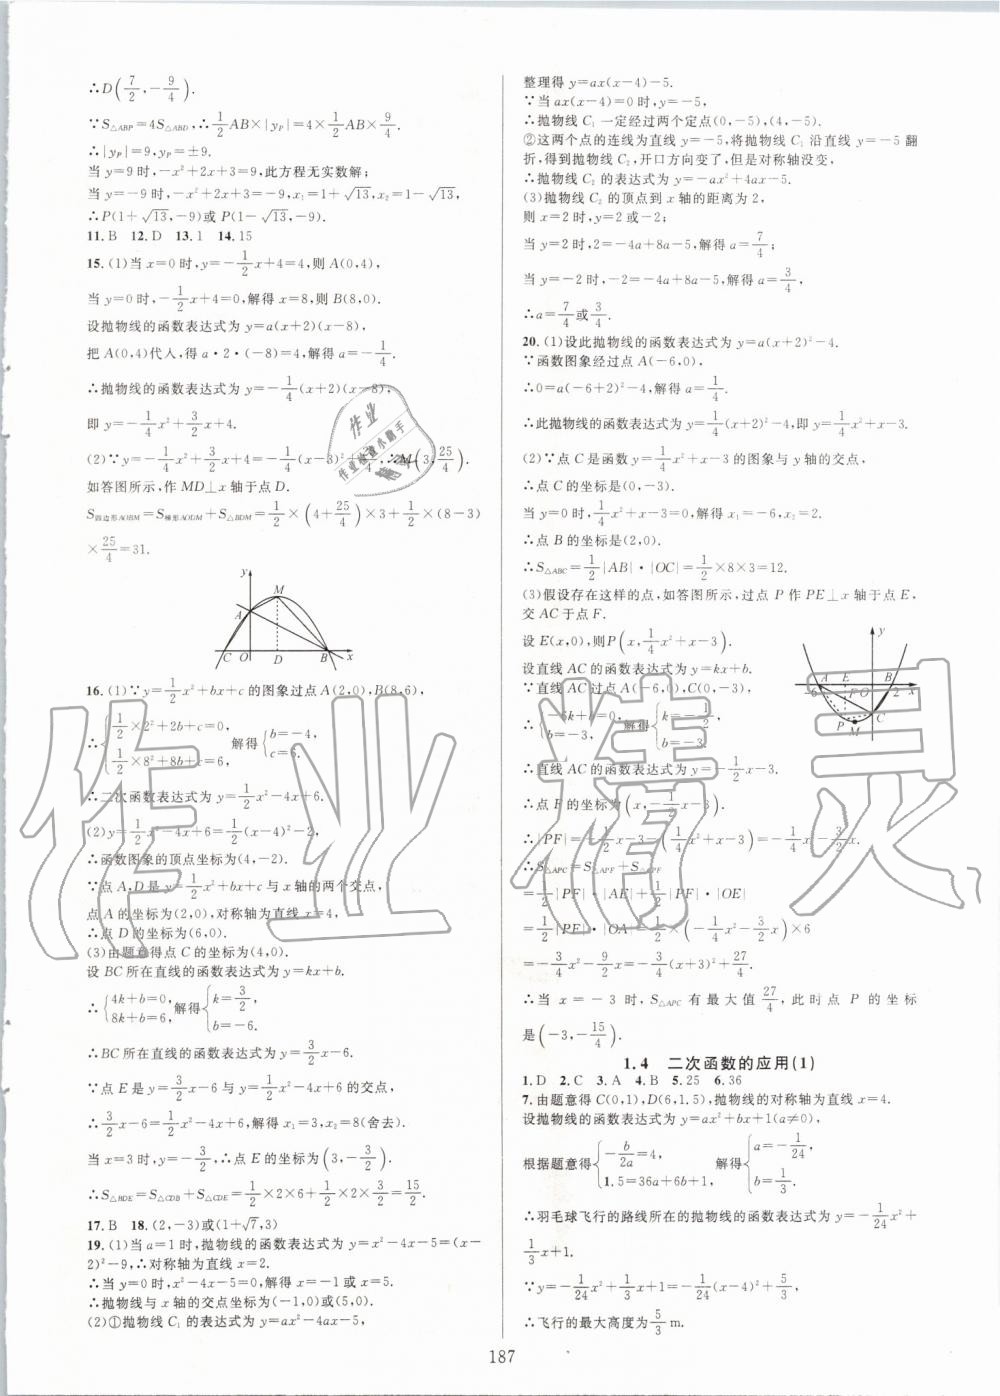 ∴D(7/2,-9/4).
∵S△ABP=4S△ABD,∴1/2AB×|yP|=4×1/2AB×9/4.
∴|yP|=9,yP=±9.
当y=9时,-x²+2x+3=9,此方程无实数解;
当y=-9时,-x²+2x+3=-9,x₁=1+√13,x₂=1-√13,
∴P(1+√13,-9)或P(1-√13,-9).
11.B 12.D 13.1 14.15
15.(1)当x=0时,y=-1/2x+4=4,则A(0,4),
当y=0时,-1/2x+4=0,解得x=8,则B(8,0).
设抛物线的函数表达式为y=a(x+2)(x-8),
把A(0,4)代入,得a·2·(-8)=4,解得a=-1/4.
∴抛物线的函数表达式为y=-1/4(x+2)(x-8),
即y=-1/4x²+3/2x+4.
如答图所示,作MD⊥x轴于点D.
S四边形AOBM=S梯形AODM+S△BDM=1/2×(4+25/4)×3+1/2×(8-3)
×25/4=31.
y
M
A
C O D B x
16.(1)∵y=1/2x²+bx+c的图象过点A(2,0),B(8,6),
∴{1/2×2²+2b+c=0, 1/2×8²+8b+c=6, 解得{b=-4, c=6.
∴二次函数表达式为y=1/2x²-4x+6.
(2)y=1/2x²-4x+6=1/2(x-4)²-2,
∴函数图象的顶点坐标为(4,-2).
∵点A,D是y=1/2x²+bx+c与x轴的两个交点,
点A的坐标为(2,0),对称轴为直线x=4,
∴点D的坐标为(6,0).
(3)由题意得点C的坐标为(4,0).
设BC所在直线的函数表达式为y=kx+b.
∴{4k+b=0, 8k+b=6, 解得{k=3/2, b=-6.
∴BC所在直线的函数表达式为y=3/2x-6.
∵点E是y=3/2x-6与y=1/2x²-4x+6的交点,
∴3/2x-6=1/2x²-4x+6,解得x₁=3,x₂=8(舍去).
当x=3时,y=-3/2,∴点E的坐标为(3,-3/2).
∴S△BDE=S△CDB+S△CDE=1/2×2×6+1/2×2×3/2=15/2.
17.B 18.(2,-3)或(1+√7,3)
19.(1)当a=1时,抛物线的函数表达式为y=x²-4x-5=(x-
2)²-9,∴对称轴为直线x=2.
∴当y=0时,x²-4x-5=0,解得x=-1或5.
∴抛物线与x轴的交点坐标为(-1,0)或(5,0).
(2)①抛物线C₁的表达式为y=ax²-4ax-5,
整理得y=ax(x-4)-5.
∵当ax(x-4)=0时,y=-5,
∴抛物线C₁一定经过两个定点(0,-5),(4,-5).
②这两个点的连线为直线y=-5,将抛物线C₁沿直线y=-5翻
折,得到抛物线C₂,开口方向变了,但是对称轴没变,
∴抛物线C₂的表达式为y=-ax²+4ax-5.
(3)抛物线C₂的顶点到x轴的距离为2,
则x=2时,y=2或-2;
当y=2时,2=-4a+8a-5,解得a=7/4;
当y=-2时,-2=-4a+8a-5,解得a=3/4,
∴a=7/4或3/4.
20.(1)设此抛物线的函数表达式为y=a(x+2)²-4.
∵函数图象经过点A(-6,0),
∴0=a(-6+2)²-4,解得a=1/4.
∴此抛物线的函数表达式为y=1/4(x+2)²-4,即y=1/4x²+x-3.
(2)∵点C是函数y=1/4x²+x-3的图象与y轴的交点,
∴点C的坐标是(0,-3).
当y=0时,1/4x²+x-3=0,解得x₁=-6,x₂=2.
∴点B的坐标是(2,0).
∴S△ABC=1/2|AB|·|OC|=1/2×8×3=12.
(3)假设存在这样的点,如答图所示,过点P作PE⊥x轴于点E,
交AC于点F.
设E(x,0),则P(x,1/4x²+x-3).
设直线AC的函数表达式为y=kx+b.
∵直线AC过点A(-6,0),C(0,-3),
∴{-6k+b=0, b=-3, 解得{k=-1/2, b=-3.
∴直线AC的函数表达式为y=-1/2x-3.
∴点F的坐标为(x,-1/2x-3).
∴|PF|=-1/2x-3-(1/4x²+x-3)=-1/4x²-3/2x.
∴S△APC=S△APF+S△CPF
=1/2|PF|·|AE|+1/2|PF|·|OE|
=1/2|PF|·|OA|=1/2×(-1/4x²-3/2x)×6
=-3/4x²-9/2x=-3/4(x+3)²+27/4.
∴当x=-3时,S△APC有最大值27/4,此时点P的坐标
是(-3,-15/4).
y
A E B
-6 F O 2 x
C
P M
1.4 二次函数的应用(1)
1.D 2.C 3.A 4.B 5.25 6.36
7.由题意得C(0,1),D(6,1.5),抛物线的对称轴为直线x=4.
设抛物线的函数表达式为y=ax²+bx+1(a≠0),
根据题意得{-b/2a=4, 1.5=36a+6b+1, 解得{a=-1/24, b=1/3.
∴羽毛球飞行的路线所在的抛物线的函数表达式为y=-1/24x²+
1/3x+1.
∵y=-1/24x²+1/3x+1=-1/24(x-4)²+5/3,
∴飞行的最大高度为5/3 m.
187
作业精灵
作业
作业检查小助手